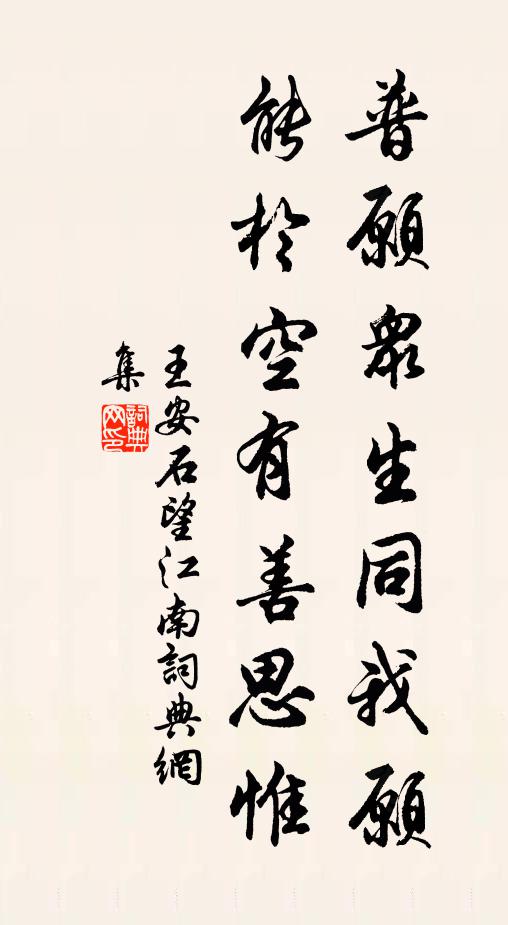 普願衆生同我願
能於空有善思惟
王安石望江南詞典網
集
詞典
网印